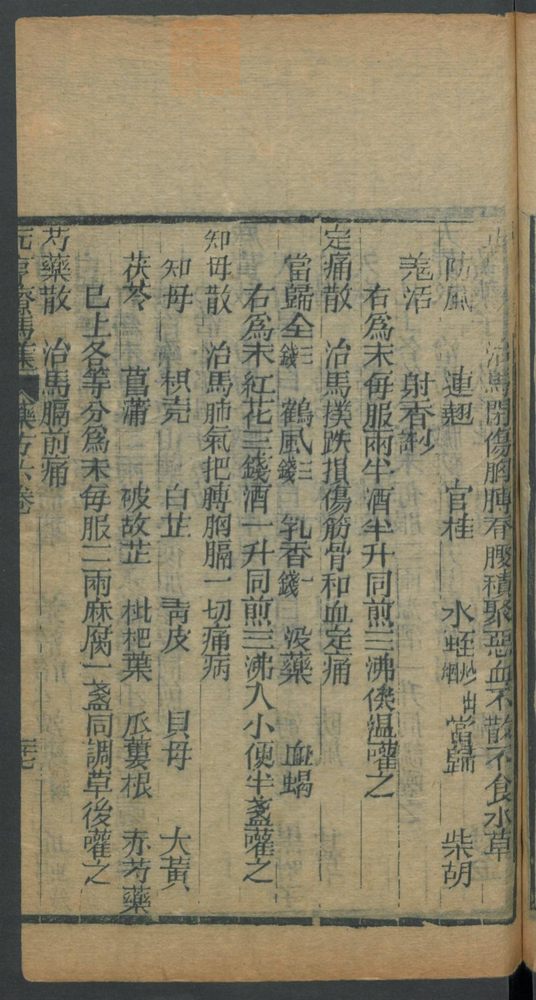 治馬閃傷胸膊脊腰積聚惡血不散不食水草
防風 連翹 官桂 水蛭炒出 當歸 柴胡
羗活 射香
右爲末每服兩半酒半升同煎三沸候温嚾之
定痛散 治馬撲跌損傷筋骨和血定痛
當歸全三錢 鶴風三錢 乳香一錢 没藥 血蝎
右爲末紅花三錢酒一升同煎三沸入小便半盞嚾之
知母散 治馬肺氣把膊胸膈一切痛病
知母 枳壳 白芷 靑皮 貝母 大黃
茯苓 菖蒲 破故芷 枇杷葉 瓜蔞根 赤芍藥
已上各等分爲末每服二兩麻腐一盞同調草後嚾之
芍藥散 治馬膈前痛
元亨療馬集 藥方六卷